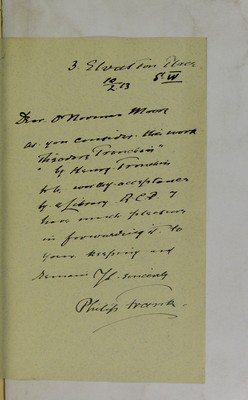 3. Elvaston Place
S. W
12/2 13
Dear Dr Norman Moore
As you consider this work
"Theodore Tronchin"
by Henry Tronchin
to be worthy acceptance
by Library R.C.P. I
have much pleasure
in forwarding it to
your keeping and
remain Yrs sincerely
Philip Frank